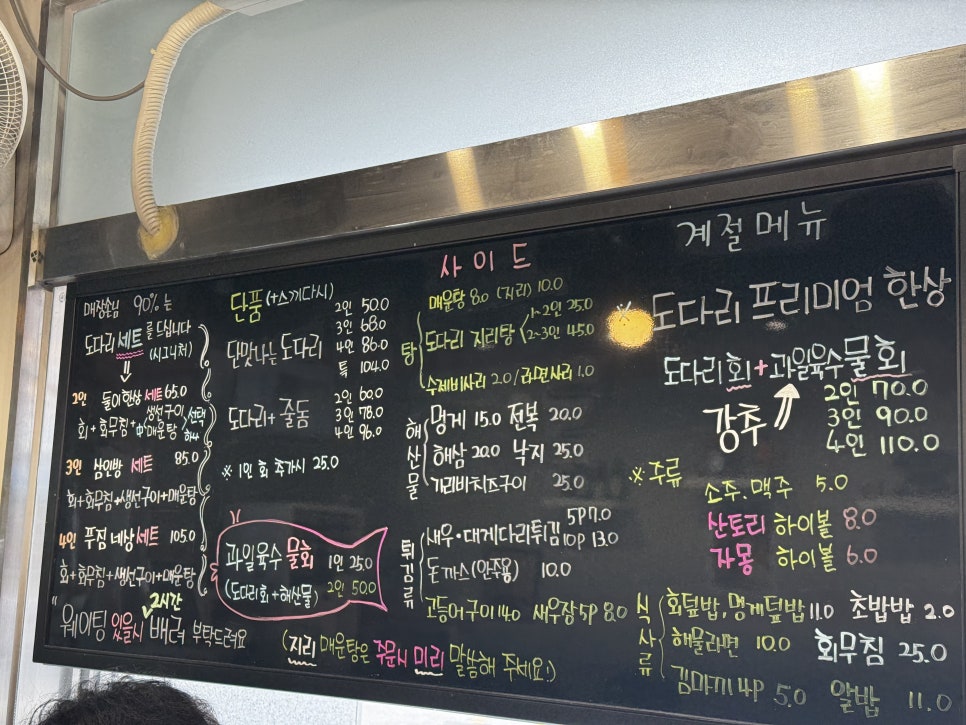 매장손님 90%는
도다리 세트를 드십니다
(시그니처)
2인 둘이한상 세트 65.0
회+회무침+中 생선구이 매운탕 >선택 하나
3인 삼인방 세트 85.0
회+회무침+생선구이+매운탕
4인 푸짐 네상세트 105.0
회+회무침+생선구이+매운탕
"웨이팅 있을시 2시간 배려 부탁드려요
단품(+스끼다시)
단맛나는 도다리
2인 50.0
3인 68.0
4인 86.0
특 104.0
도다리+줄돔
2인 60.0
3인 78.0
4인 96.0
※ 1인 회 추가시 25.0
과일육수 물회 1인 25.0
(도다리회+해산물) 2인 50.0
(지리 매운탕은 주문시 미리 말씀해 주세요:)
사이드
탕
매운탕 8.0 (지리) 10.0
도다리 지리탕
1~2인 25.0
2~3인 45.0
수제비사리 2.0 / 라면사리 1.0
해산물
멍게 15.0 전복 20.0
해삼 20.0 낙지 25.0
가리비치즈구이 25.0
튀김류
새우·대게다리튀김 5P 7.0
10P 13.0
돈까스(안주용) 10.0
고등어구이 14.0 새우장 5P 8.0
계절메뉴
※ 도다리 프리미엄 한상
도다리회+과일육수물회
강추
2인 70.0
3인 90.0
4인 110.0
※주류
소주.맥주 5.0
산토리 하이볼 8.0
자몽 하이볼 6.0
식사류
회덮밥, 멍게덮밥 11.0 초밥밥 2.0
해물라면 10.0 회무침 25.0
김마끼 4P 5.0 알밥 11.0